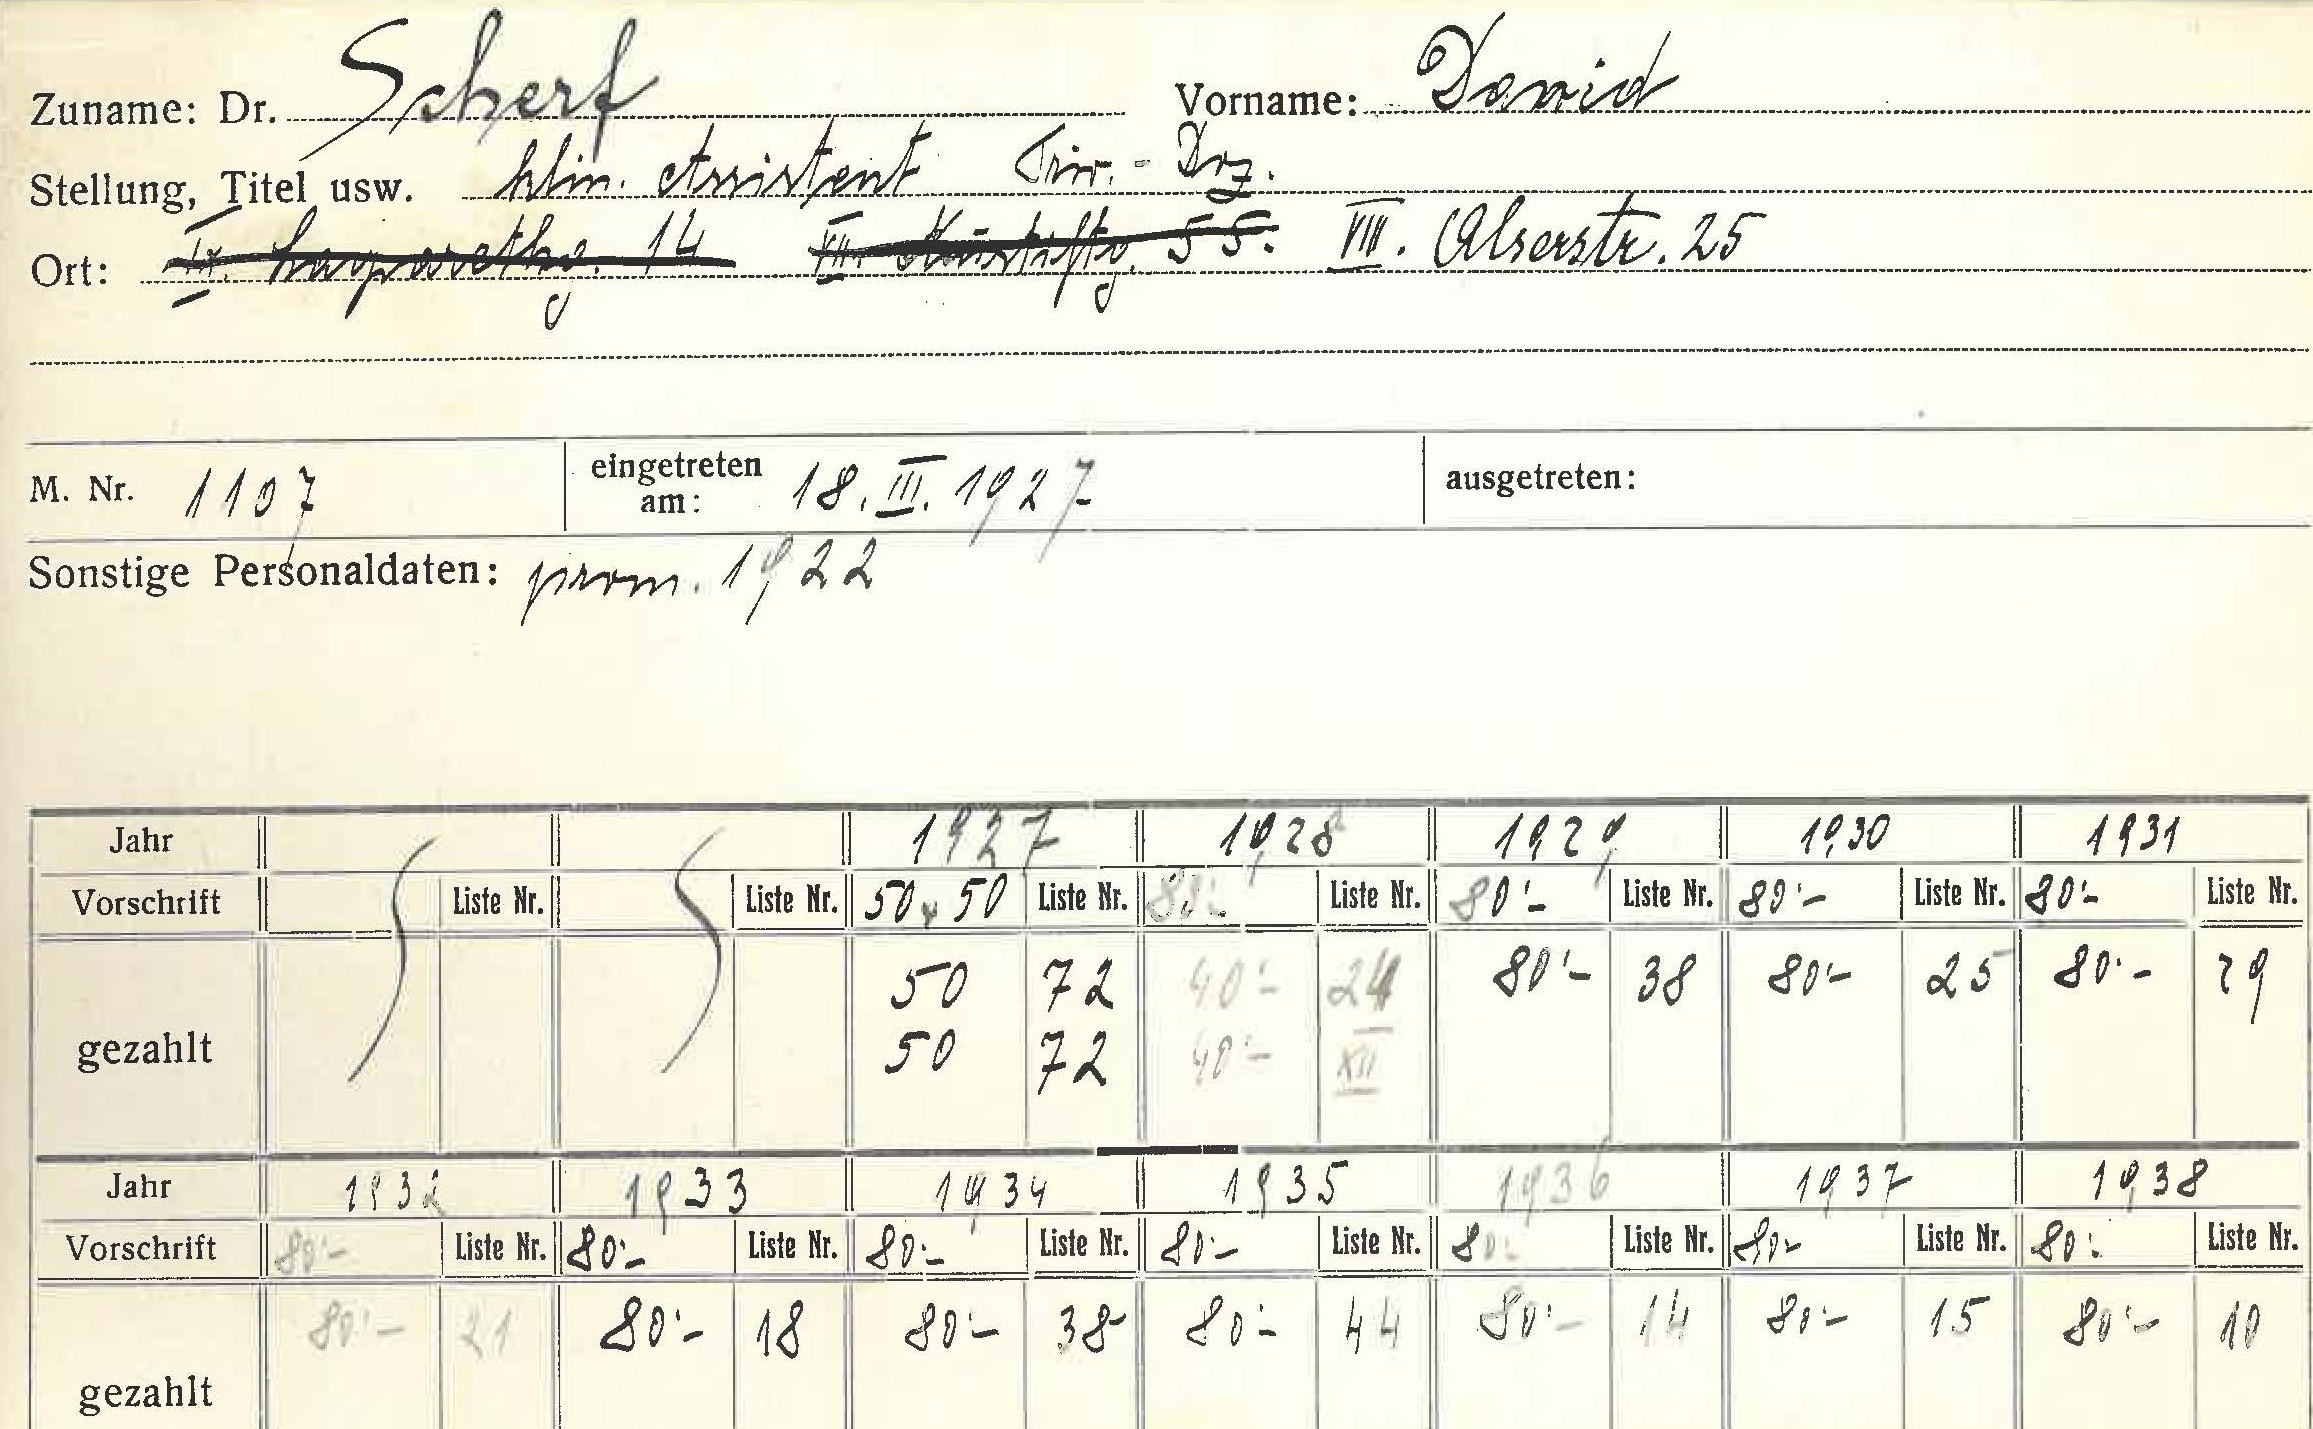 Zuname: Dr. Scherf Vorname: David
Stellung, Titel usw. klin. Assistent Priv.-Doz.
Ort: IX. Lazarethg. 14 VII. Neustiftg. 55. VIII. Alserstr. 25
M. Nr. 1107 eingetreten am: 18. III. 1927 ausgetreten:
Sonstige Personaldaten: prom. 1922
Jahr 1927 1928 1929 1930 1931
Vorschrift Liste Nr. Liste Nr. 50 + 50 Liste Nr. 80'- Liste Nr. 80'- Liste Nr. 80'- Liste Nr. 80'- Liste Nr.
gezahlt 50 72 40'- 24 80'- 38 80'- 25 80'- 29
50 72 40'- XII
Jahr 1932 1933 1934 1935 1936 1937 1938
Vorschrift 80'- Liste Nr. 80'- Liste Nr. 80'- Liste Nr. 80'- Liste Nr. 80'- Liste Nr. 80- Liste Nr. 80'- Liste Nr.
gezahlt 80'- 21 80'- 18 80'- 38 80'- 44 80'- 14 80'- 15 80'- 10